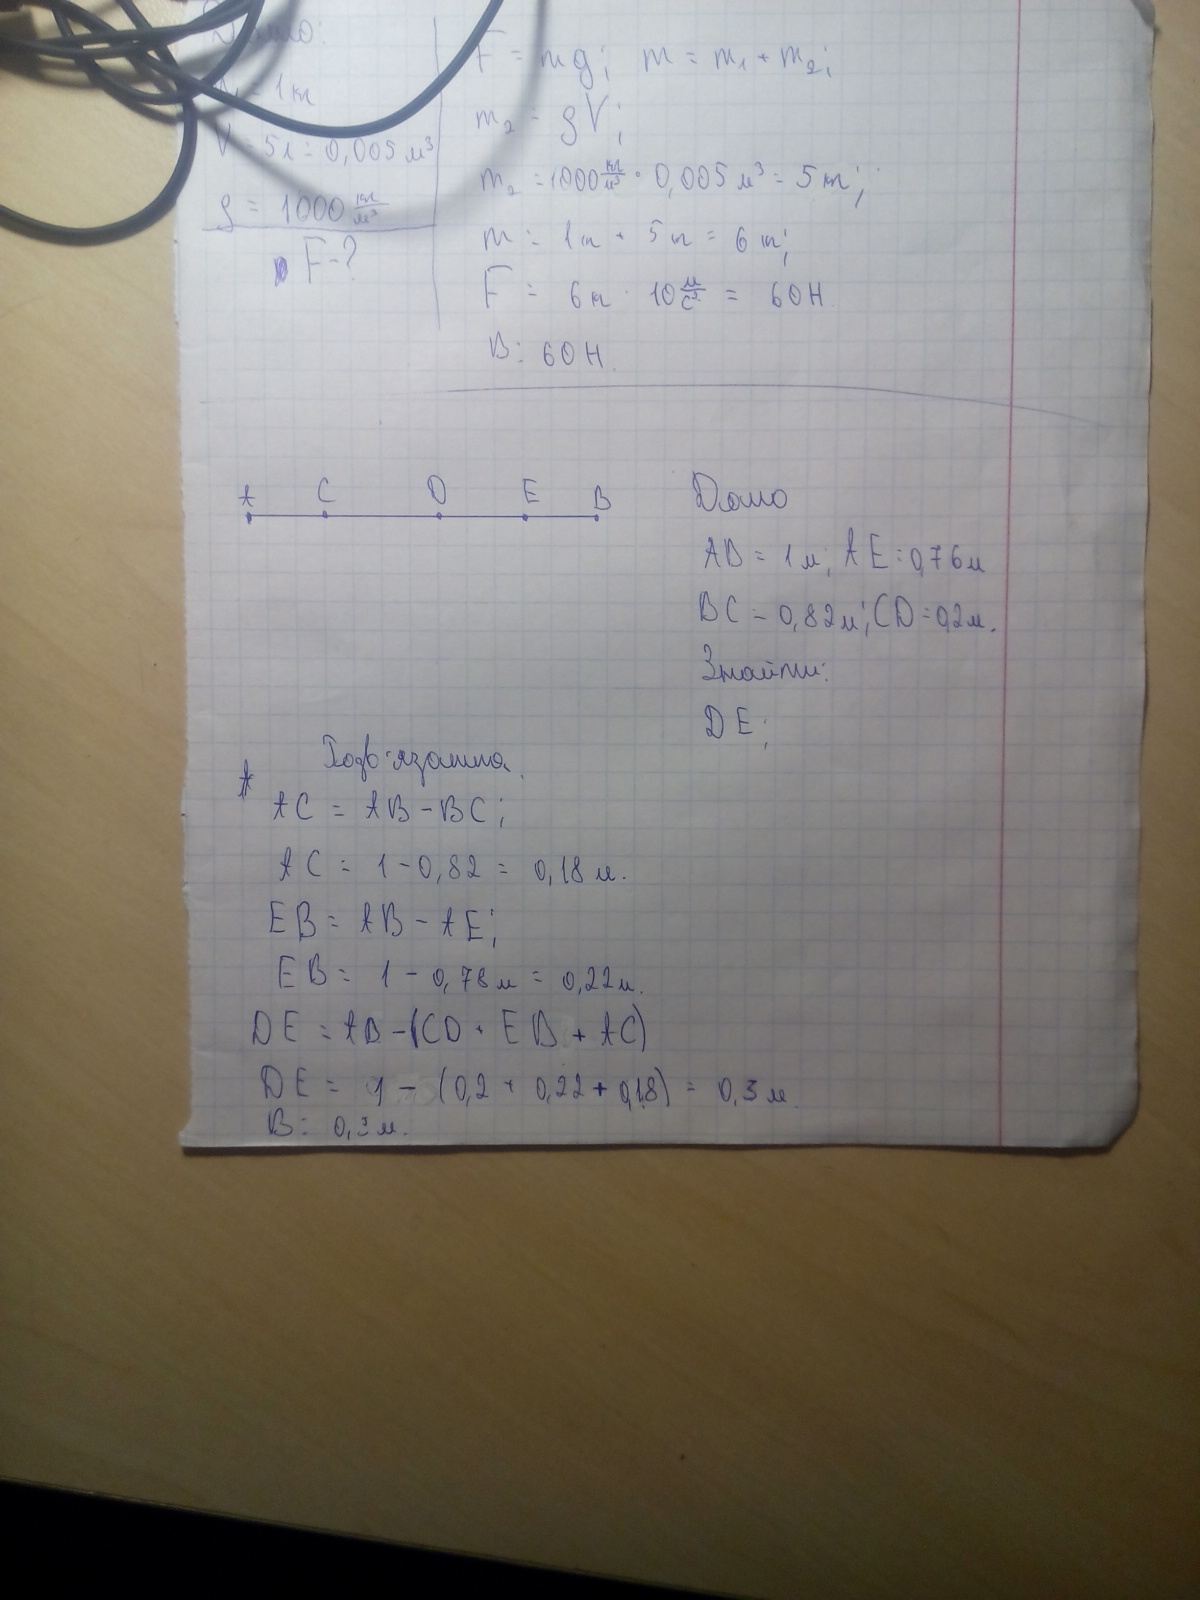 Дано:
= 1 кг
V = 5л = 0,005 м³
ρ = 1000 кг/м³
F - ?
F = mg; m = m₁ + m₂;
m₂ = ρV;
m₂ = 1000 кг/м³ · 0,005 м³ = 5 кг;
m = 1кг + 5 кг = 6 кг;
F = 6 кг · 10 м/с² = 60 Н.
В: 60 Н.
A C D E B
Дано
AB = 1 м; AE = 0,76 м
BC = 0,82 м; CD = 0,2 м.
Знайти:
DE;
A
AC = AB - BC;
AC = 1 - 0,82 = 0,18 м.
EB = AB - AE;
EB = 1 - 0,78 м = 0,22 м.
DE = AB - (CD + EB + AC)
DE = 1 - (0,2 + 0,22 + 0,18) = 0,3 м.
В: 0,3 м.